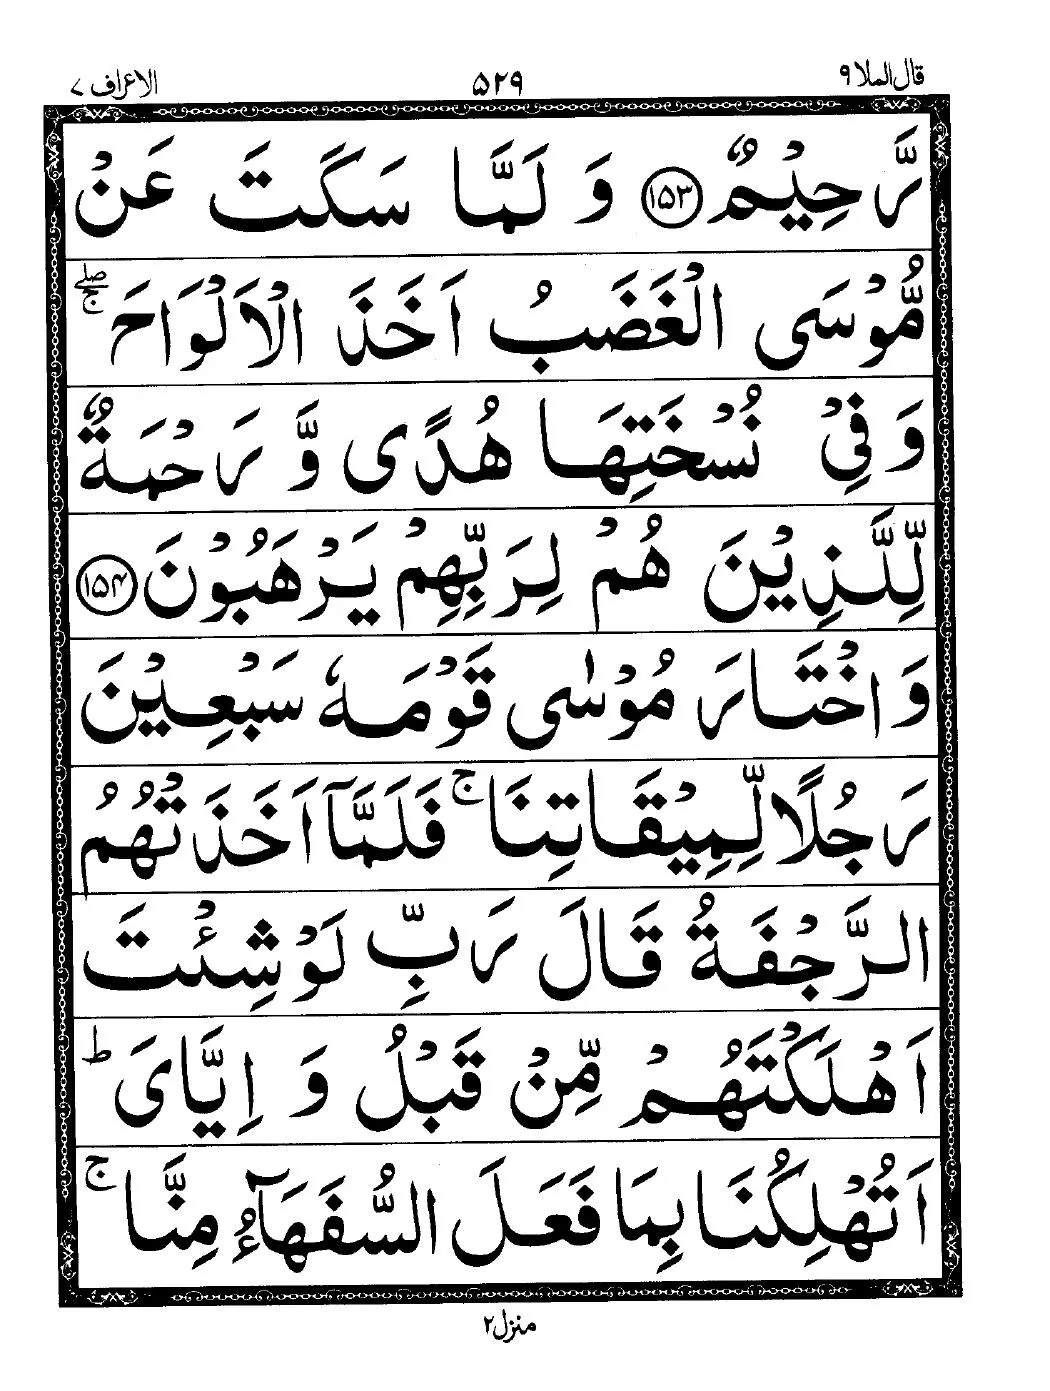 قال الملا ٩
٥٢٩
الاعراف ٧
رَّحِيْمٌ ۝١٥٣ وَ لَمَّا سَكَتَ عَنْ
مُّوْسَى الْغَضَبُ اَخَذَ الْاَلْوَاحَ ۖۚ
وَ فِيْ نُسْخَتِهَا هُدًى وَّ رَحْمَةٌ
لِّلَّذِيْنَ هُمْ لِرَبِّهِمْ يَرْهَبُوْنَ ۝١٥٤
وَ اخْتَارَ مُوْسٰى قَوْمَهٗ سَبْعِيْنَ
رَجُلًا لِّمِيْقَاتِنَا ۚ فَلَمَّاۤ اَخَذَتْهُمُ
الرَّجْفَةُ قَالَ رَبِّ لَوْ شِئْتَ
اَهْلَكْتَهُمْ مِّنْ قَبْلُ وَ اِيَّايَ ؕ
اَتُهْلِكُنَا بِمَا فَعَلَ السُّفَهَآءُ مِنَّا ۚ
منزل ٢